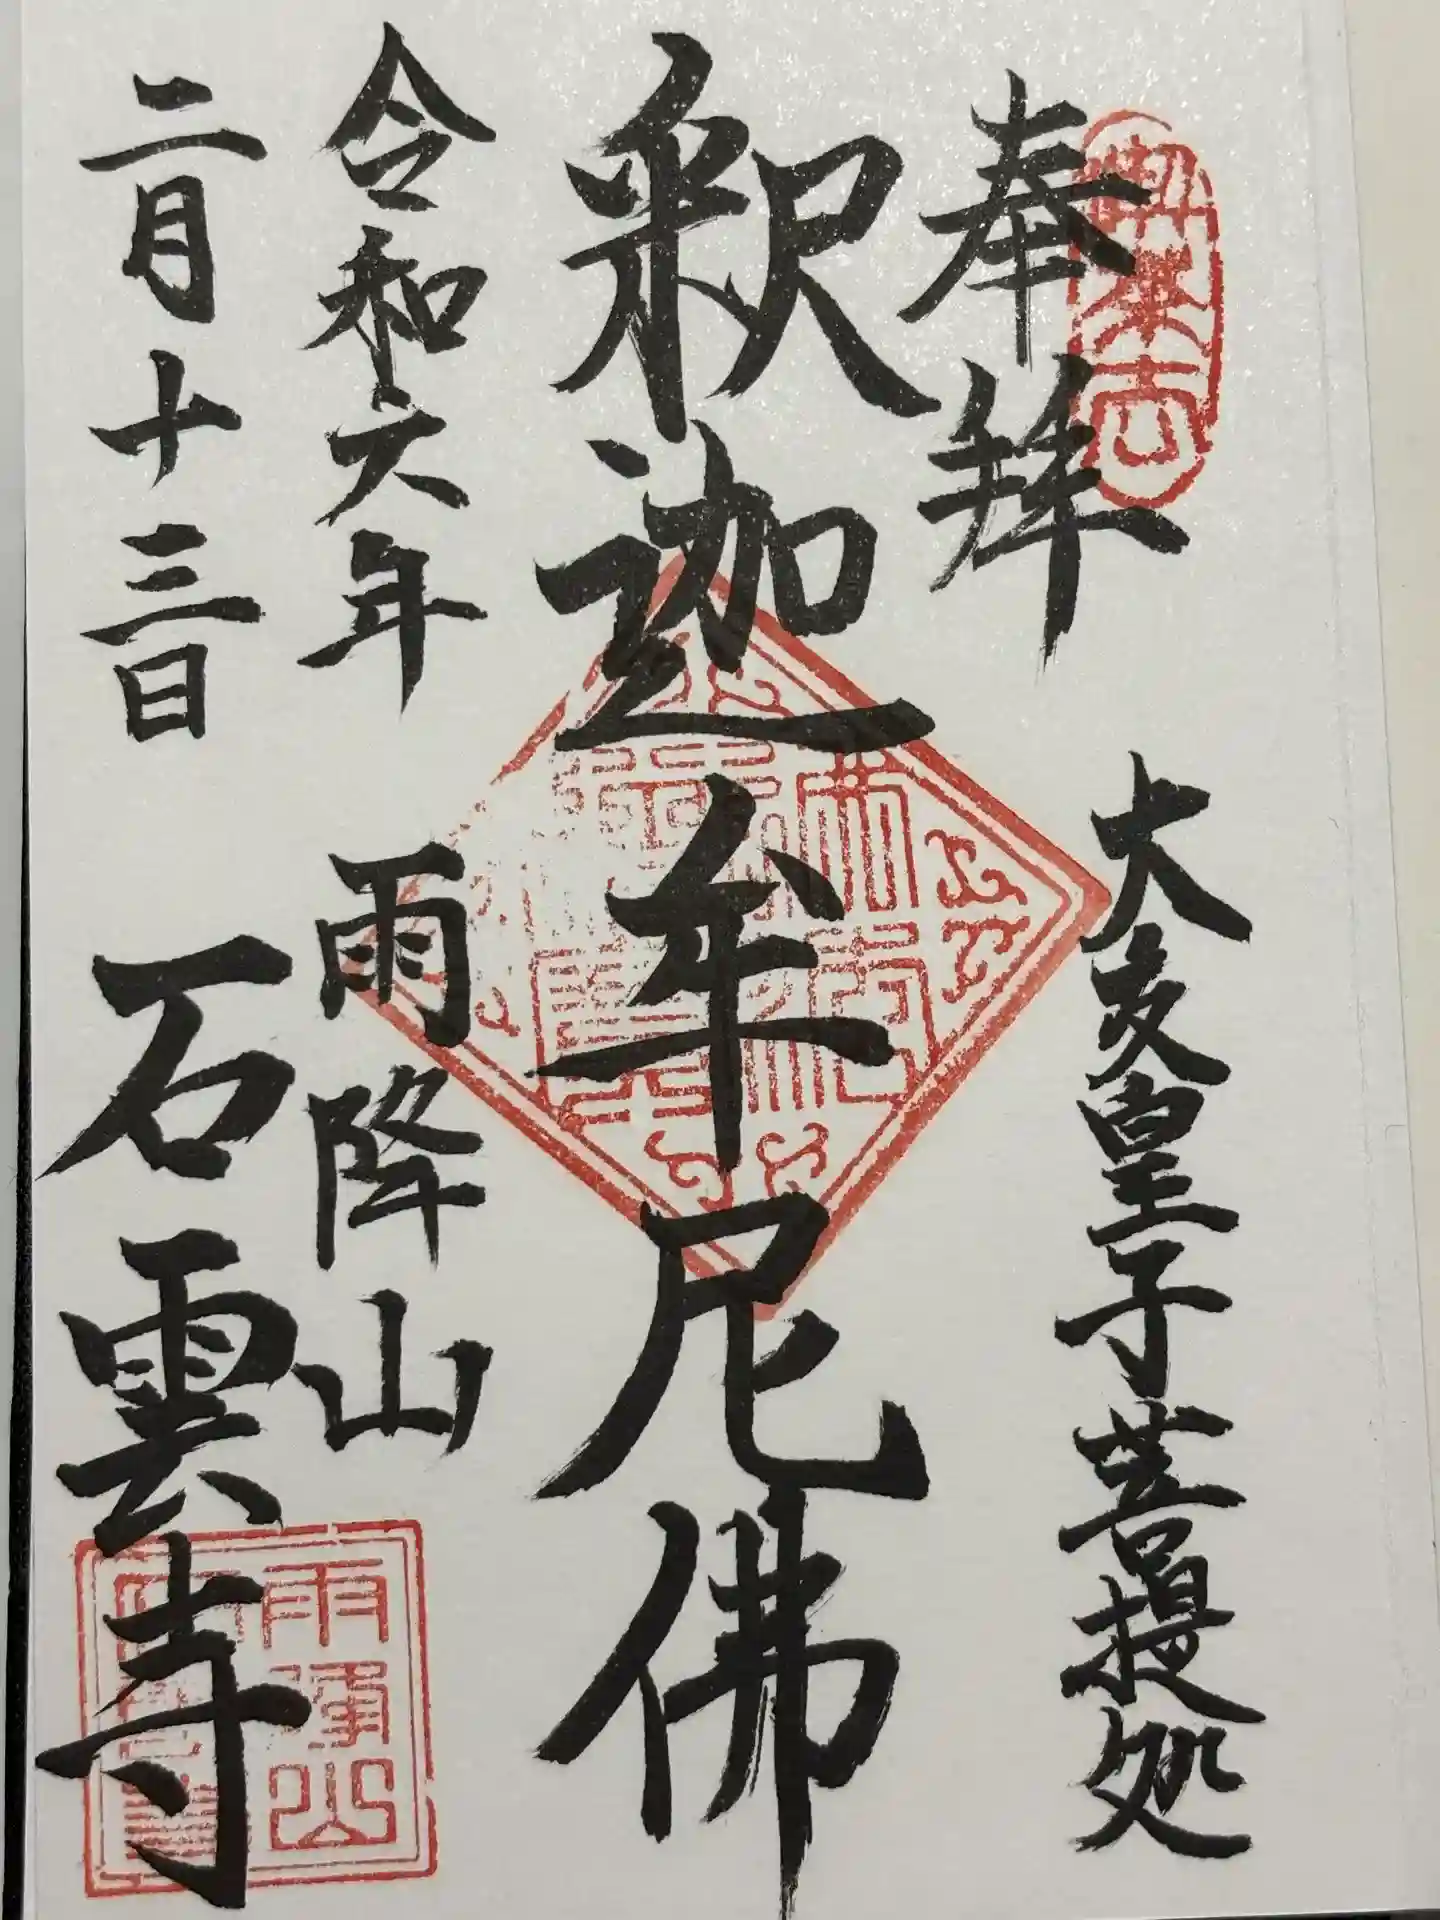 奉拝
大友皇子菩提処
釈迦牟尼佛
令和六年
雨降山
二月十三日
石雲寺
雨降山